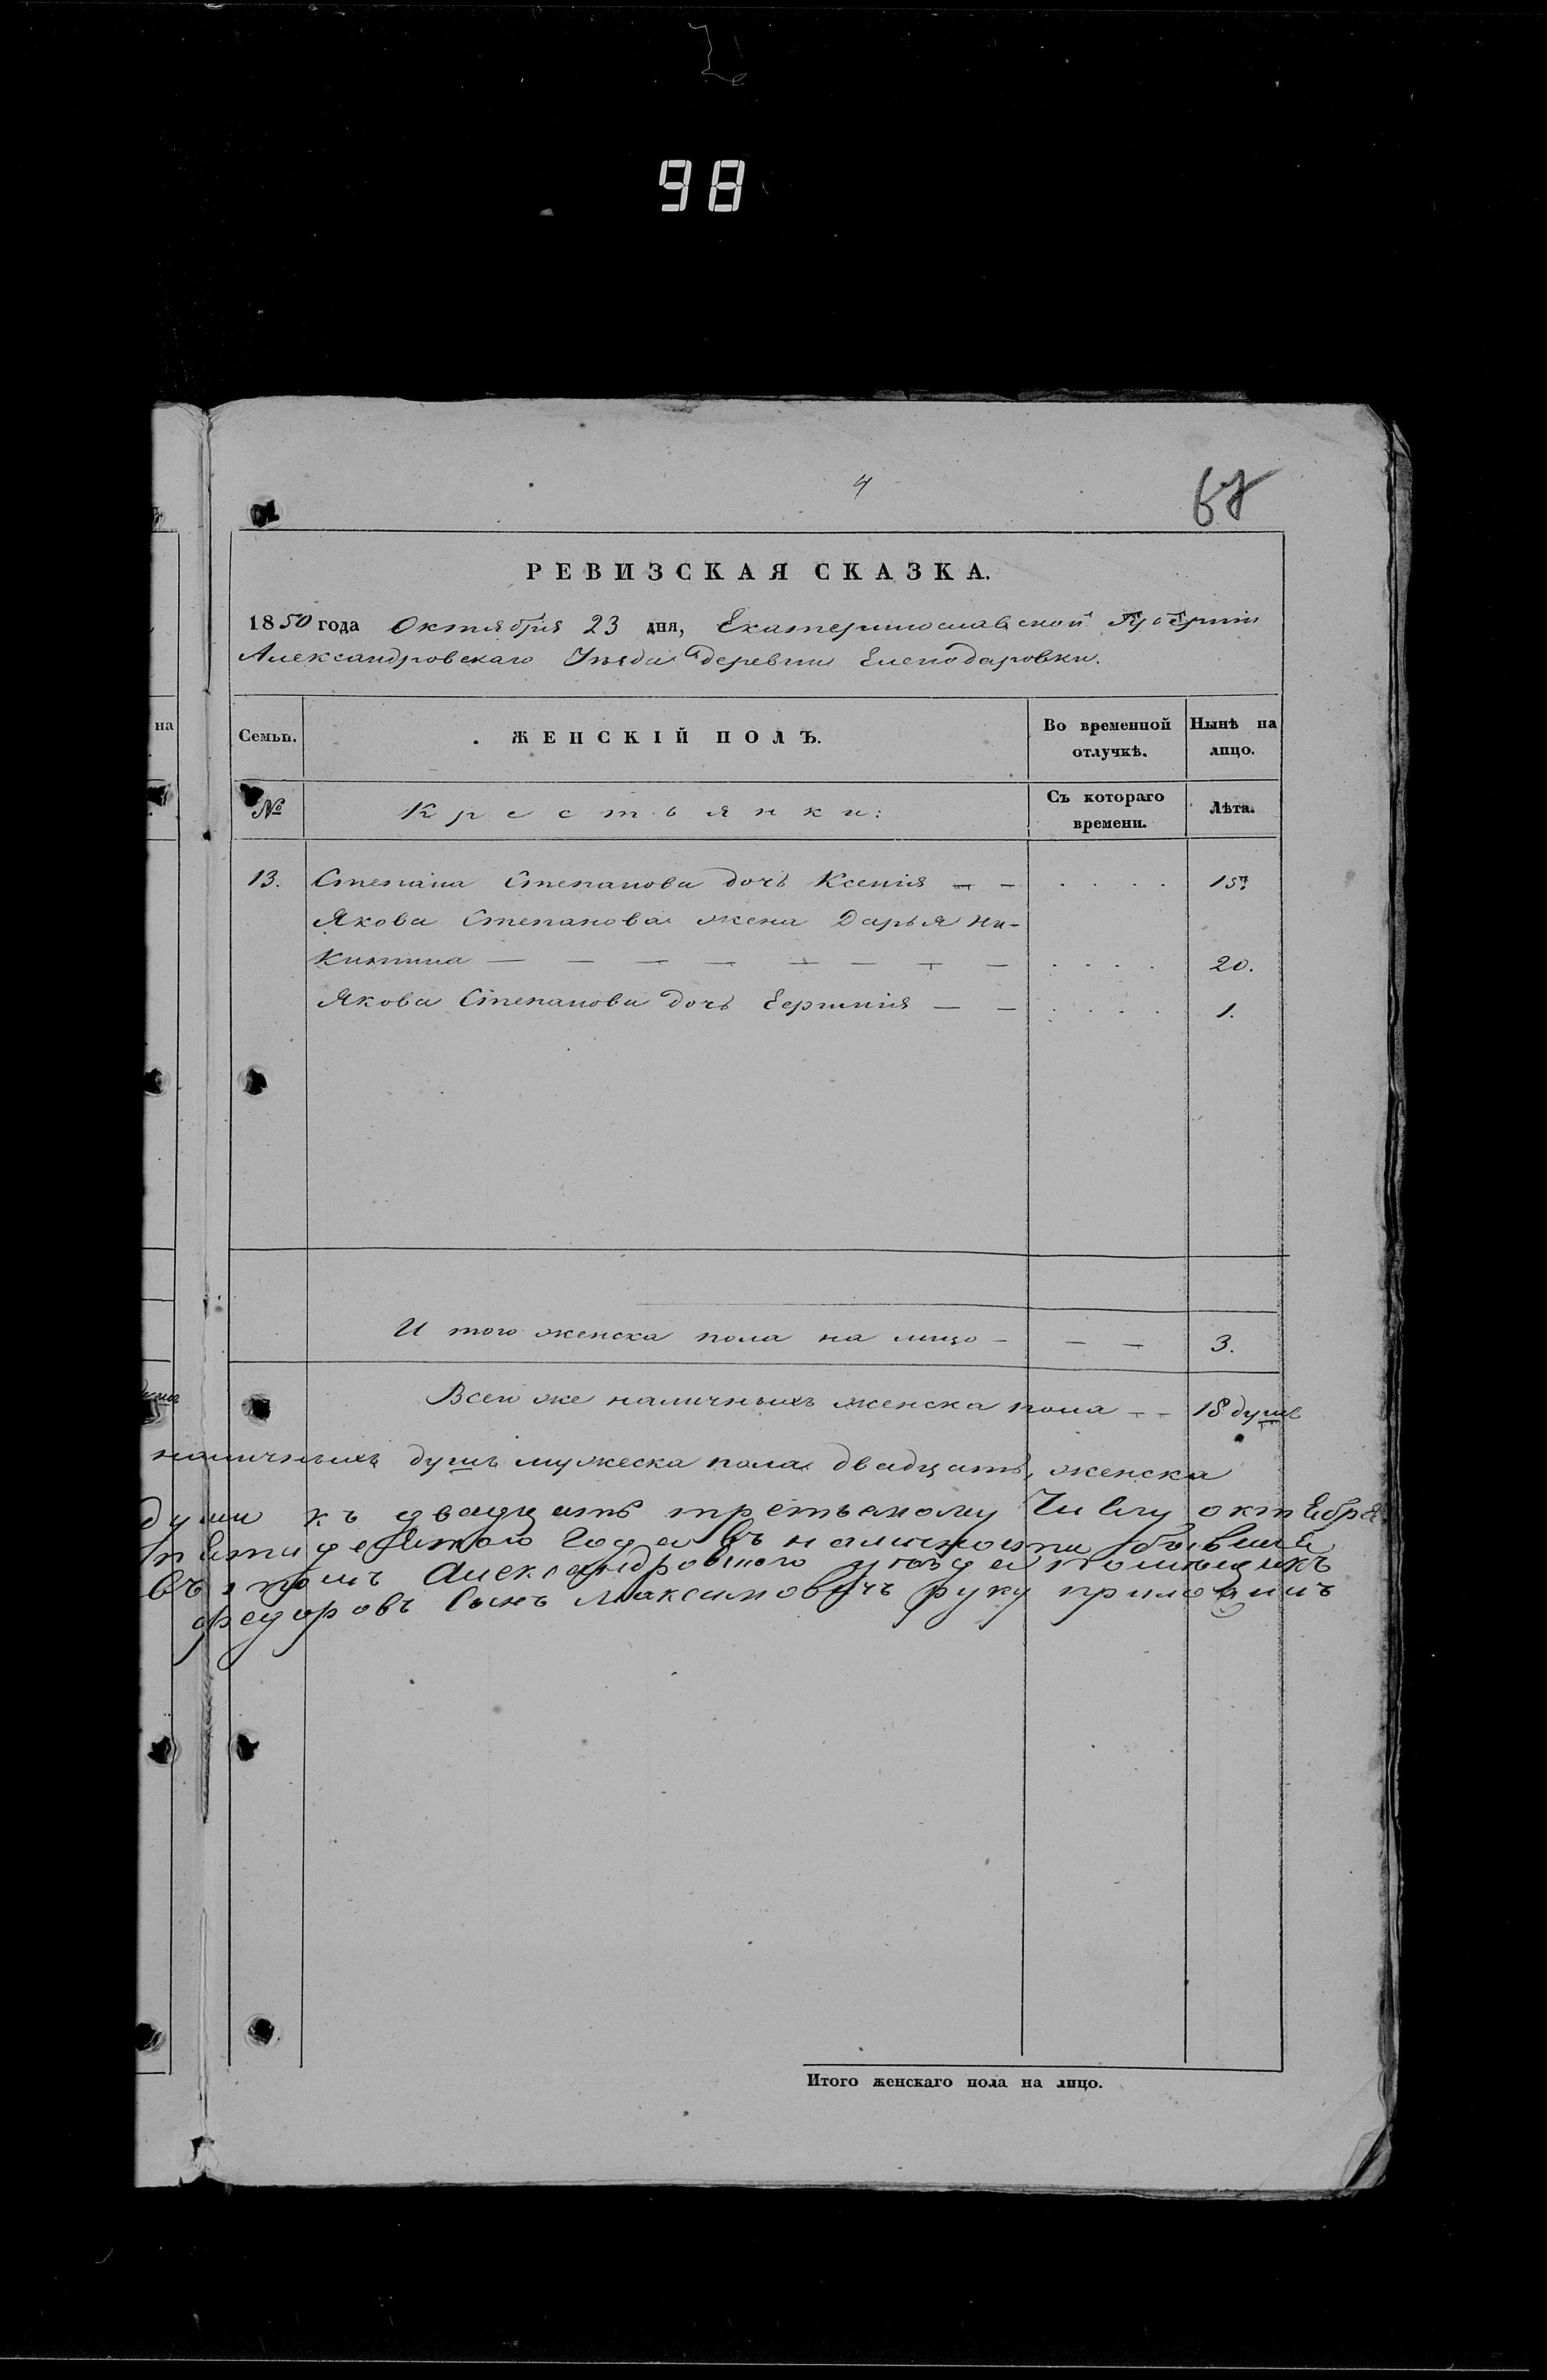 98
4
67
на
РЕВИЗСКАЯ СКАЗКА.
1850 года Октября 23 дня, Екатеринославской Губернии
Александровскаго Уезда деревни Еленодаровки.
Семьи. ЖЕНСКІЙ ПОЛЪ. Во временной отлучкѣ. Нынѣ на лицо.
№ Крестьянки: Съ котораго времени. Лѣта.
13. Степана Степанова дочь Ксенія — — . . . . 15
Якова Степанова жена Дарья Ни-
китина — — — — — — — — . . . . 20.
Якова Степанова дочь — — . . . . 1.
И того женска пола на лицо — — — 3.
Всего же наличныхъ женска пола — — 18 душъ
наличныхъ душъ мужеска пола двадцать, женска
души къ двадцать третьемому Числу октебря
петидесятого года въ наличности бывшия
въ Александровского уезда помещикъ
Федоровъ Сынъ Максимовичъ руку приложилъ
Итого женскаго пола на лицо.